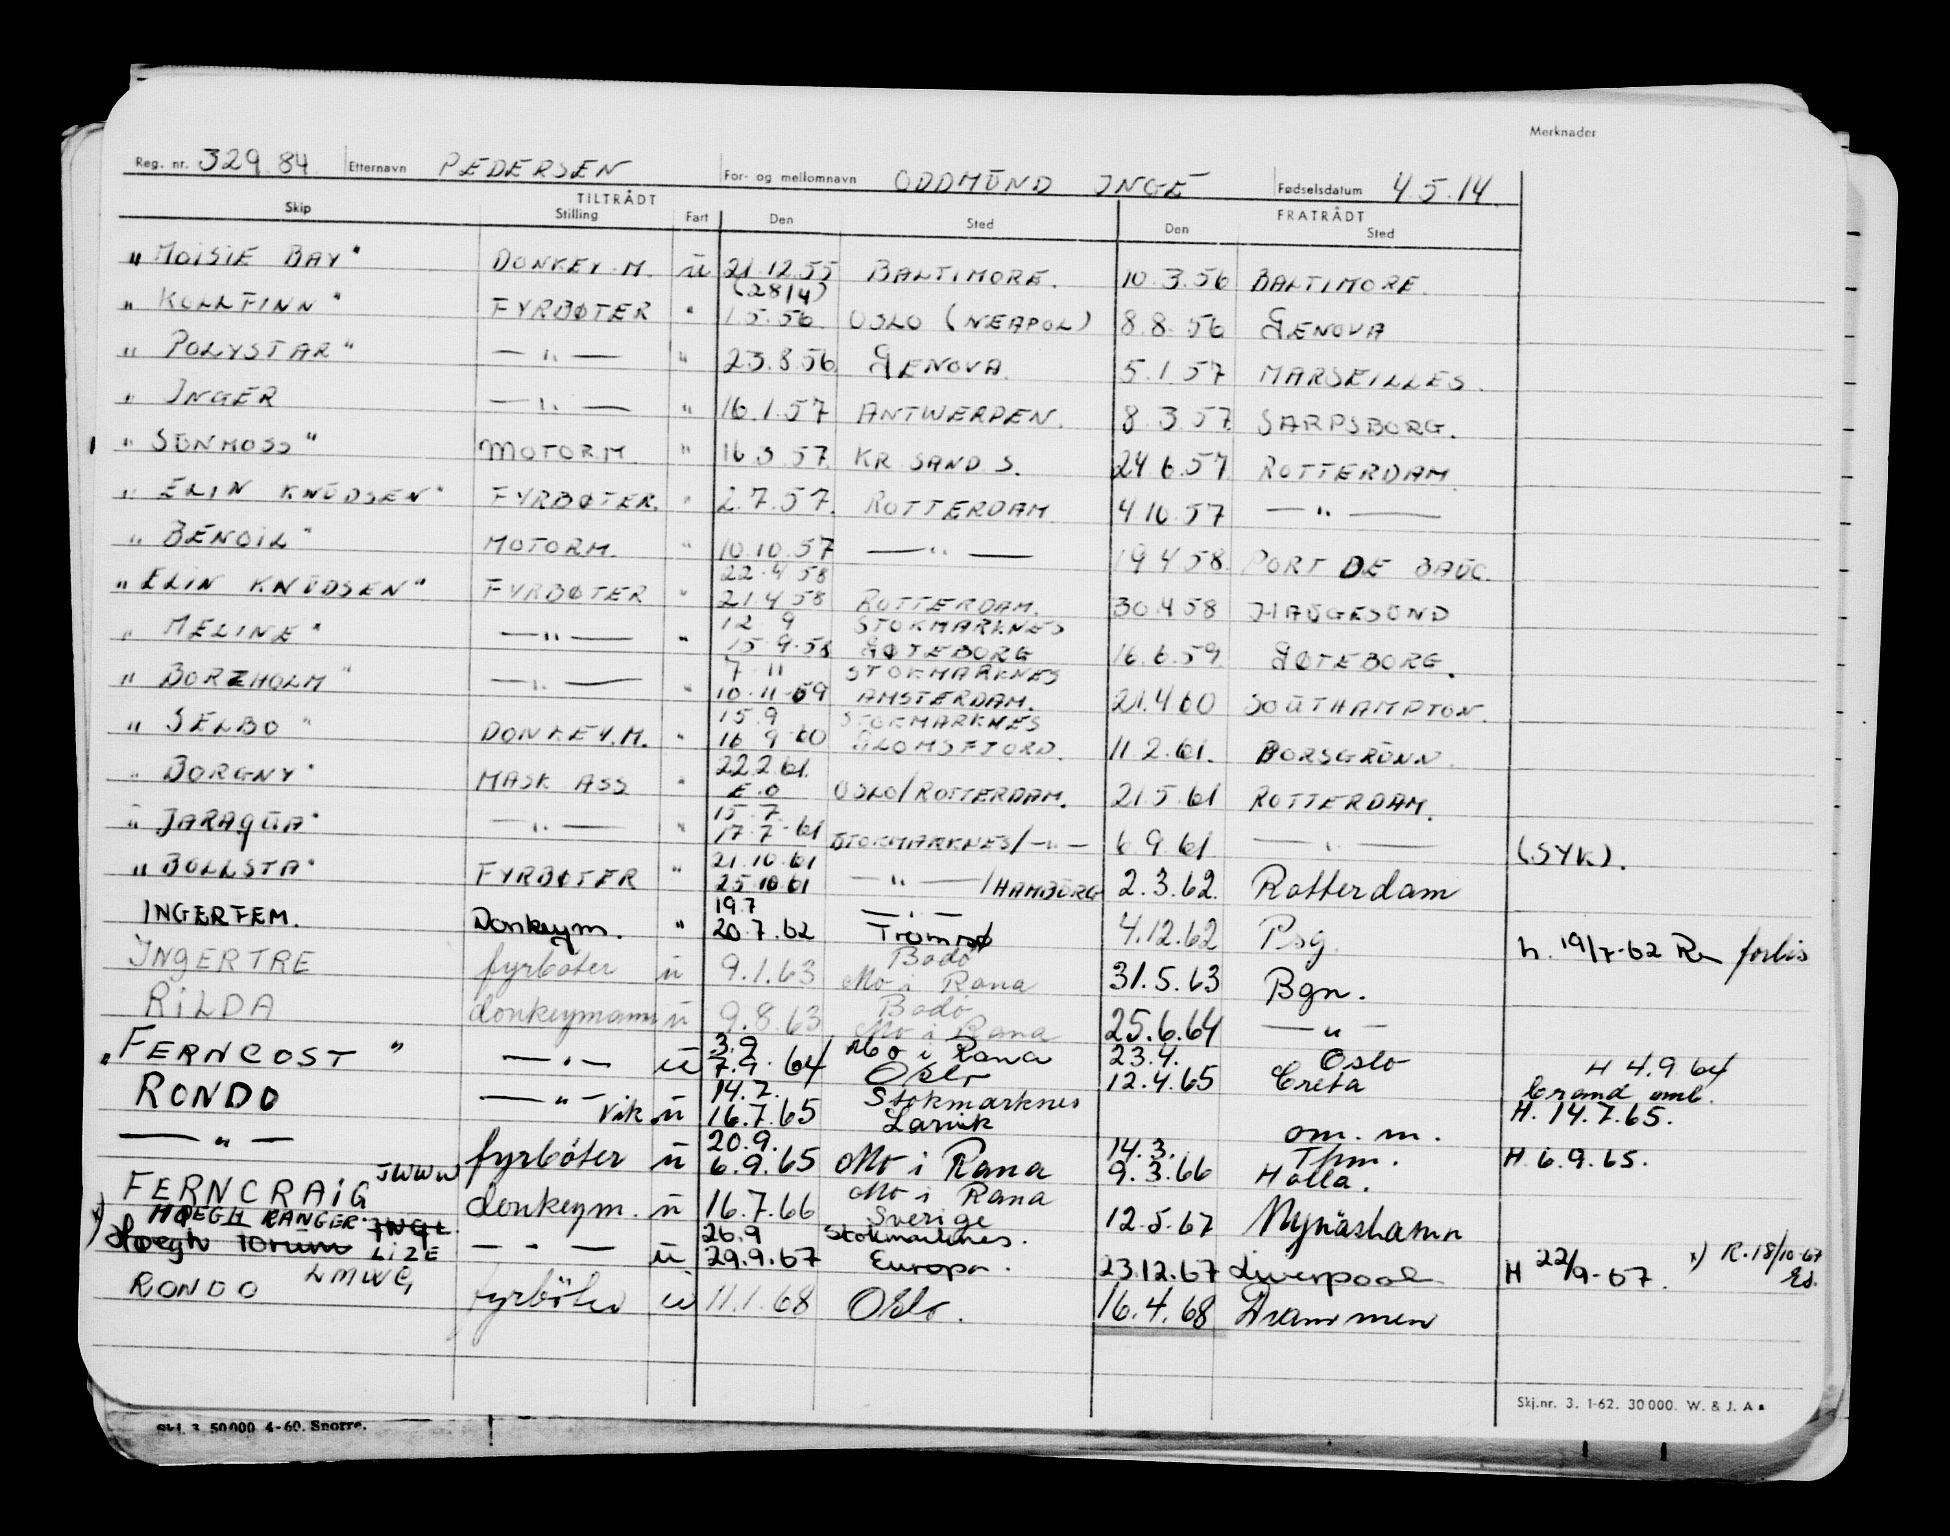 Merknader
Reg. nr. 329.84. Etternavn PEDERSEN For- og mellomnavn ODDMUND INGE Fødselsdatum 4.5.14.
TILTRÅDT FRATRÅDT
Skip Stilling Fart Den Sted Den Sted
"MOISIE BAY" DONKEY.M. ü 21.12.55 BALTIMORE. 10.3.56 BALTIMORE.
(28/4)
"KOLLFINN" FYRBØTER " 1.5.56. OSLO (NEAPOL) 8.8.56 GENOVA
"POLYSTAR" — " — " 23.8.56 GENOVA. 5.1.57 MARSEILLES.
" INGER — " — " 16.1.57 ANTWERPEN. 8.3.57 SARPSBORG.
" SUNMOSS" MOTORM. " 16.3.57. KR.SAND S. 24.6.57. ROTTERDAM.
" ELIN KNUDSEN" FYRBØTER. " 2.7.57. ROTTERDAM 4.10.57 — " —
" BENOIL" MOTORM. " 10.10.57 — " — 19.4.58. PORT DE BAUC.
22.4.58
"ELIN KNUDSEN" FYRBØTER " 21.4.58 ROTTERDAM. 30.4.58 HAUGESUND
12.9 STOKMARKNES
" MELINE" — " — " 15.9.58 GØTEBORG 16.6.59. GØTEBORG.
7.11 STOKMARKNES
" BORZHOLM" — " — " 10.11.59 AMSTERDAM. 21.4.60 SOUTHAMPTON.
15.9 STOKMARKNES
" SELBO " DONKEY.M. " 16.9.60 GLOMSFJORD. 11.2.61. BORSGRUNN.
22.2.61.
" BORGNY" MASK ASS " E.O OSLO/ROTTERDAM. 21.5.61 ROTTERDAM.
15.7.
" JARAQUA" — " — " 17.7.61 STOKMARKNES/—"— 6.9.61 — " — (SYK).
21.10.61
" BOLLSTA" FYRBØTER " 25.10.61 — " — /HAMBURG 2.3.62. Rotterdam
19.7 — " —
INGERFEM. Donkeym. " 20.7.62 Tromsø 4.12.62 Psg. h. 19/7-62 forbis
Bodø
INGERTRE fyrbøter ü 9.1.63 Mo i Rana 31.5.63 Bgn.
Bodø
RILDA donkeymann ü 9.8.63 Mo i Rana 25.6.64 — " —
3.9 Mo i Rana 23.4. Oslo H 4.9 64
"FERNCOST " — " — ü 7.9.64 Oslo 12.4.65 Creta
14.7. Stokmarknes
RONDO — " — vik ü 16.7.65 Larvik om. m. H. 14.7.65.
20.9. 14.3. Thm.
— " — fyrbøter ü 6.9.65 Mo i Rana 9.3.66 Holla. H. 6.9.65.
JWWW Mo i Rana
FERNCRAIG donkeym. ü 16.7.66 Sverige 12.5.67 Nynäshamn
HØEGH RANGER 26.9 Stokmarknes.
x) Høegh Torum LIZE — " — ü 29.9.67 Europa. 23.12.67 Liverpool H 22/9-67. x) R.18/10-67
LMWG
RONDO fyrbøter ü 11.1.68 Oslo. 16.4.68 Drammen
Skj.nr. 3. 1-62. 30000. W. & J. A.
Skj. 3 50000 4-60. Snorre.